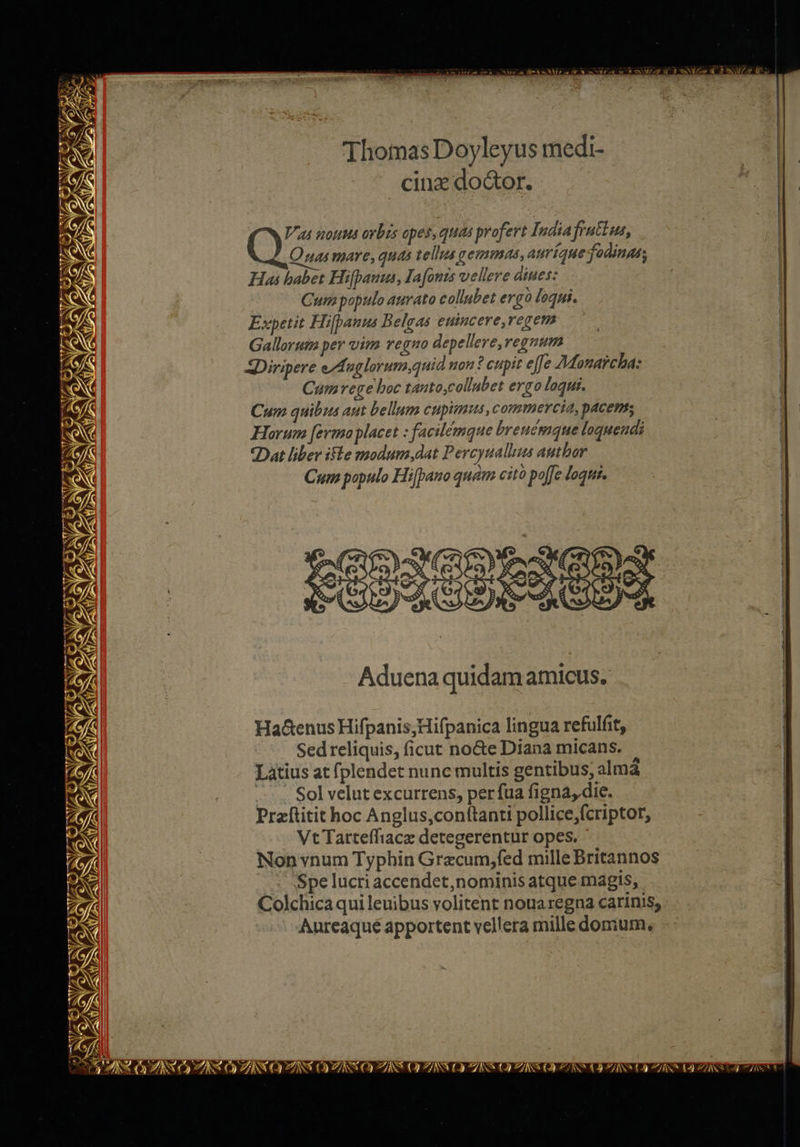 Thomas Doyleyus medi-
cinæ doctor.
QVas nouus orbis opes, quas profert India fructus,
Quas mare, quas tellus gemmas, auríque fodinas;
Has habet Hiſpanus, Iaſonis vellere diues:
Cum populo aurato collubet ergò loqui.
Expetit Hiſpanus Belgas euincere, regem
Gallorum per vim regno depellere, regnum
Diripere Anglorum, quid non? cupit eſſe Monarcha:
Cum rege hoc tanto, collubet ergo loqui.
Cum quibus aut bellum cupimus, commercia, pacem;
Horum ſermo placet : facilémque breuémque loquendi
Dat liber iſte modum, dat Percyuallus author
Cum populo Hiſpano quàm citò poſſe loqui.
Aduena quidam amicus.
Hactenus Hiſpanis, Hiſpanica lingua refulſit,
Sed reliquis, ſicut nocte Diana micans.
Latius at ſplendet nunc multis gentibus, almâ
Sol velut excurrens, per ſua ſigna, die.
Præſtitit hoc Anglus, conſtanti pollice, ſcriptor,
Vt Tarteſſiacæ detegerentur opes.
Non vnum Typhin Græcum, ſed mille Britannos
Spe lucri accendet, nominis atque magis,
Colchica qui leuibus volitent noua regna carinis,
Aureaqué apportent vellera mille domum.